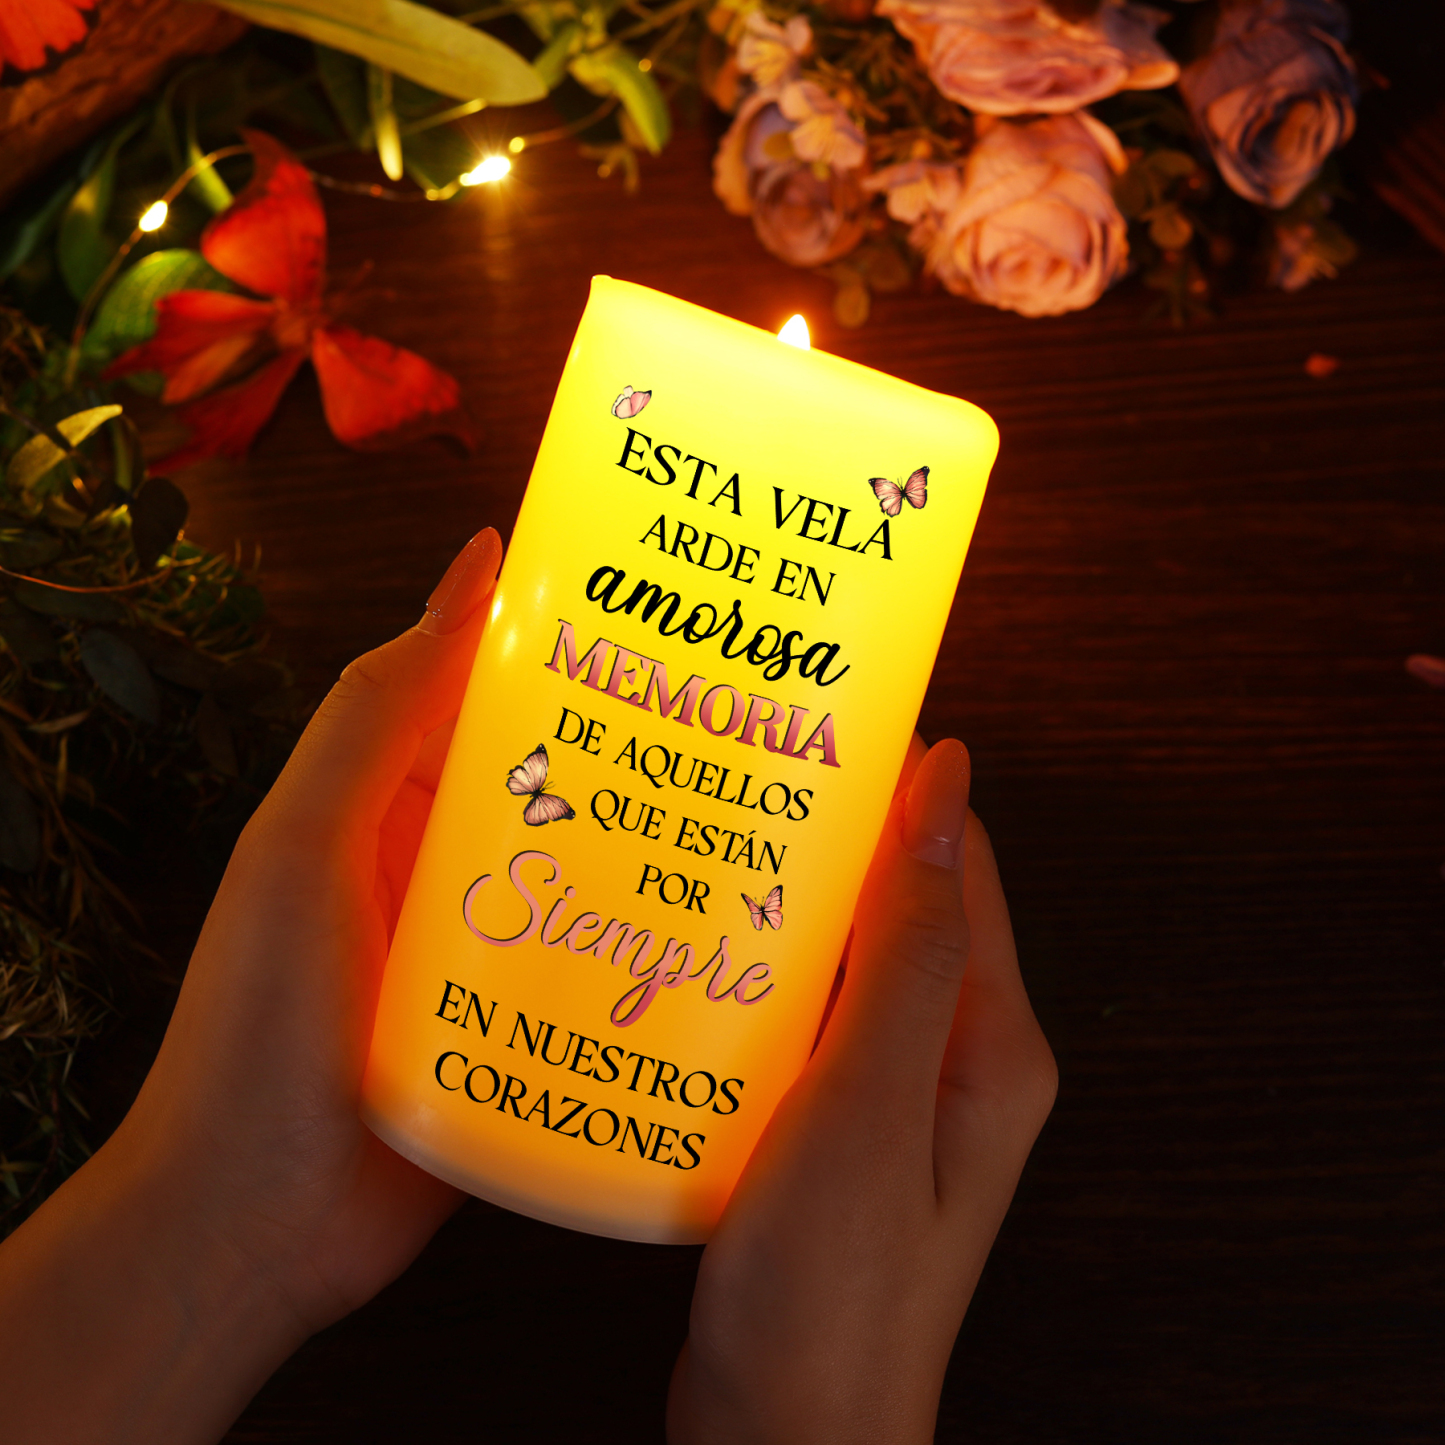 ESTA VELA
ARDE EN
amorosa
MEMORIA
DE AQUELLOS
QUE ESTÁN
POR
Siempre
EN NUESTROS
CORAZONES